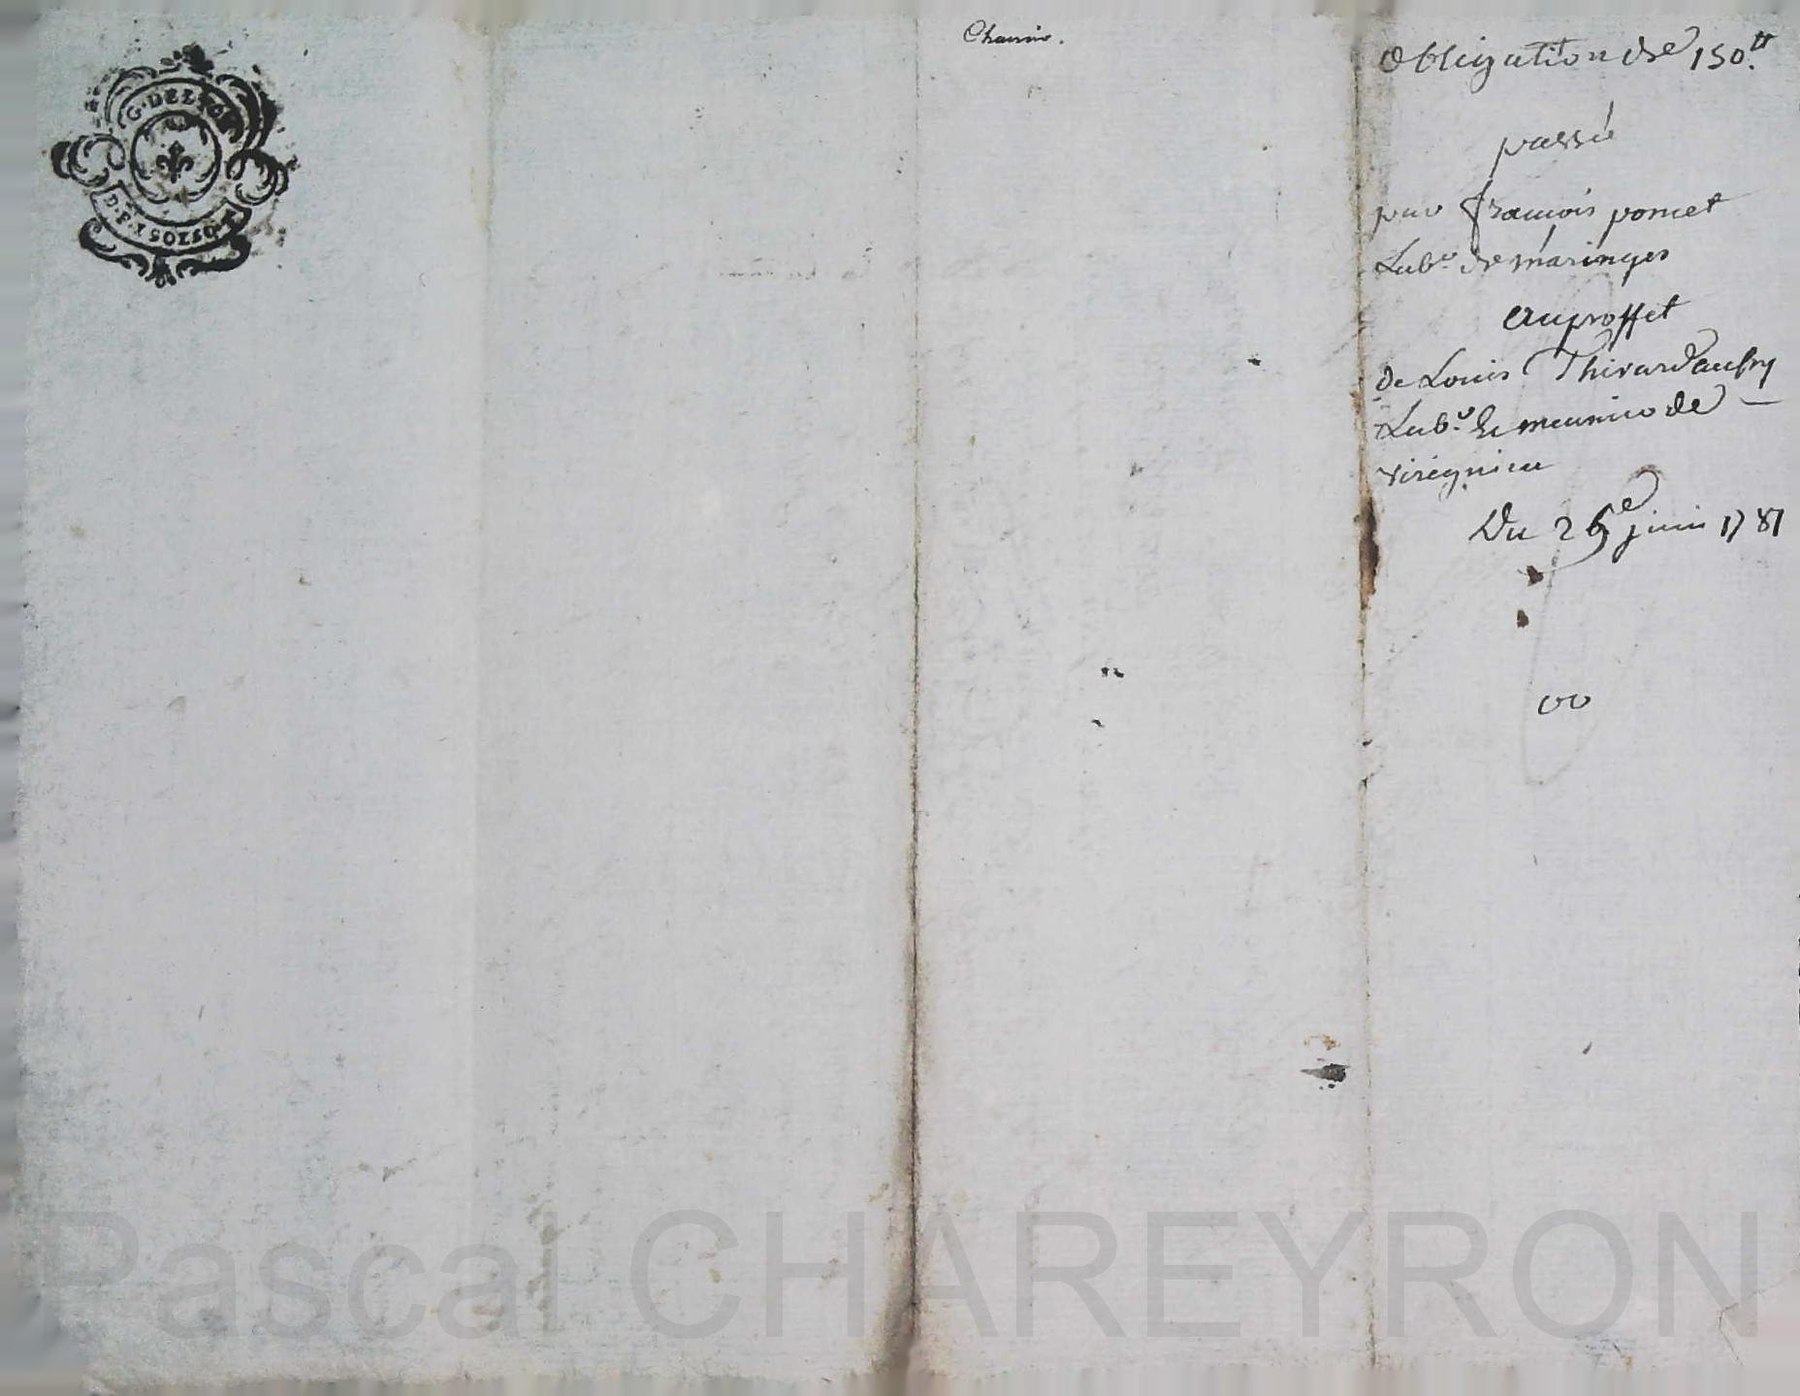 G. DE LYON
Chavino.
obligation de 150.tt
passé
par françois poncet
Lab.r de maringes
au proffet
de Louis Thivard aussy
Lab.r & meunier de —
virignieu
Du 26e juin 1781
Pascal CHAREYRON